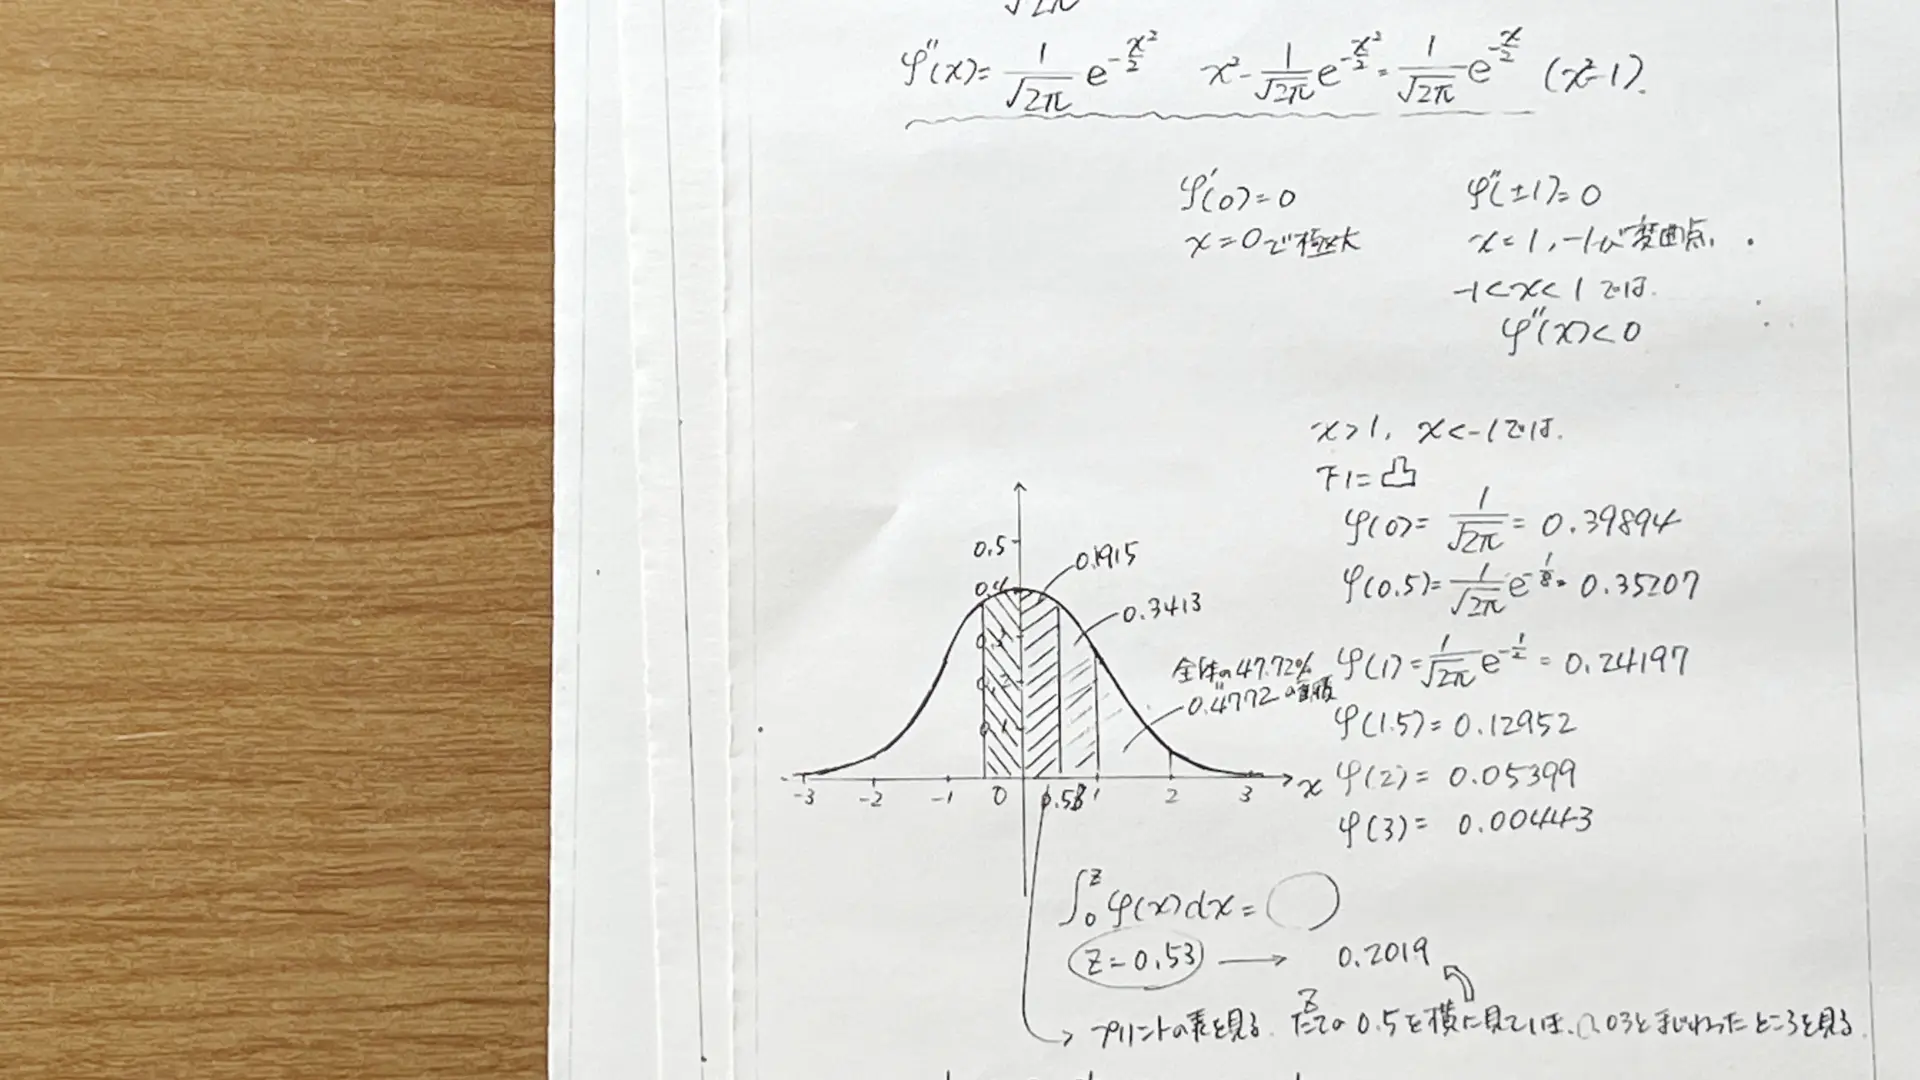 √2π
φ''(x)= 1/√2π e^-x²/2 x²- 1/√2π e^-x²/2 = 1/√2π e^-x/2 (x²-1).
φ'(0)=0
x=0で極大
φ''(±1)=0
x=1,-1が変曲点.
-1<x<1では.
φ''(x)<0
x>1, x<-1では.
下に凸
φ(0)= 1/√2π = 0.39894
φ(0.5)= 1/√2π e^-1/8 = 0.35207
φ(1)= 1/√2π e^-1/2 = 0.24197
φ(1.5)= 0.12952
φ(2)= 0.05399
φ(3)= 0.00443
0.5
0.4
0.1915
0.3413
全体の47.72%
0.4772の面積
-3 -2 -1 0 1 2 3 x
∫₀^z φ(x)dx=
z=0.53 → 0.2019
プリントの表を見る. zたての0.5を横に見ていけば、0.03とまじわったところを見る